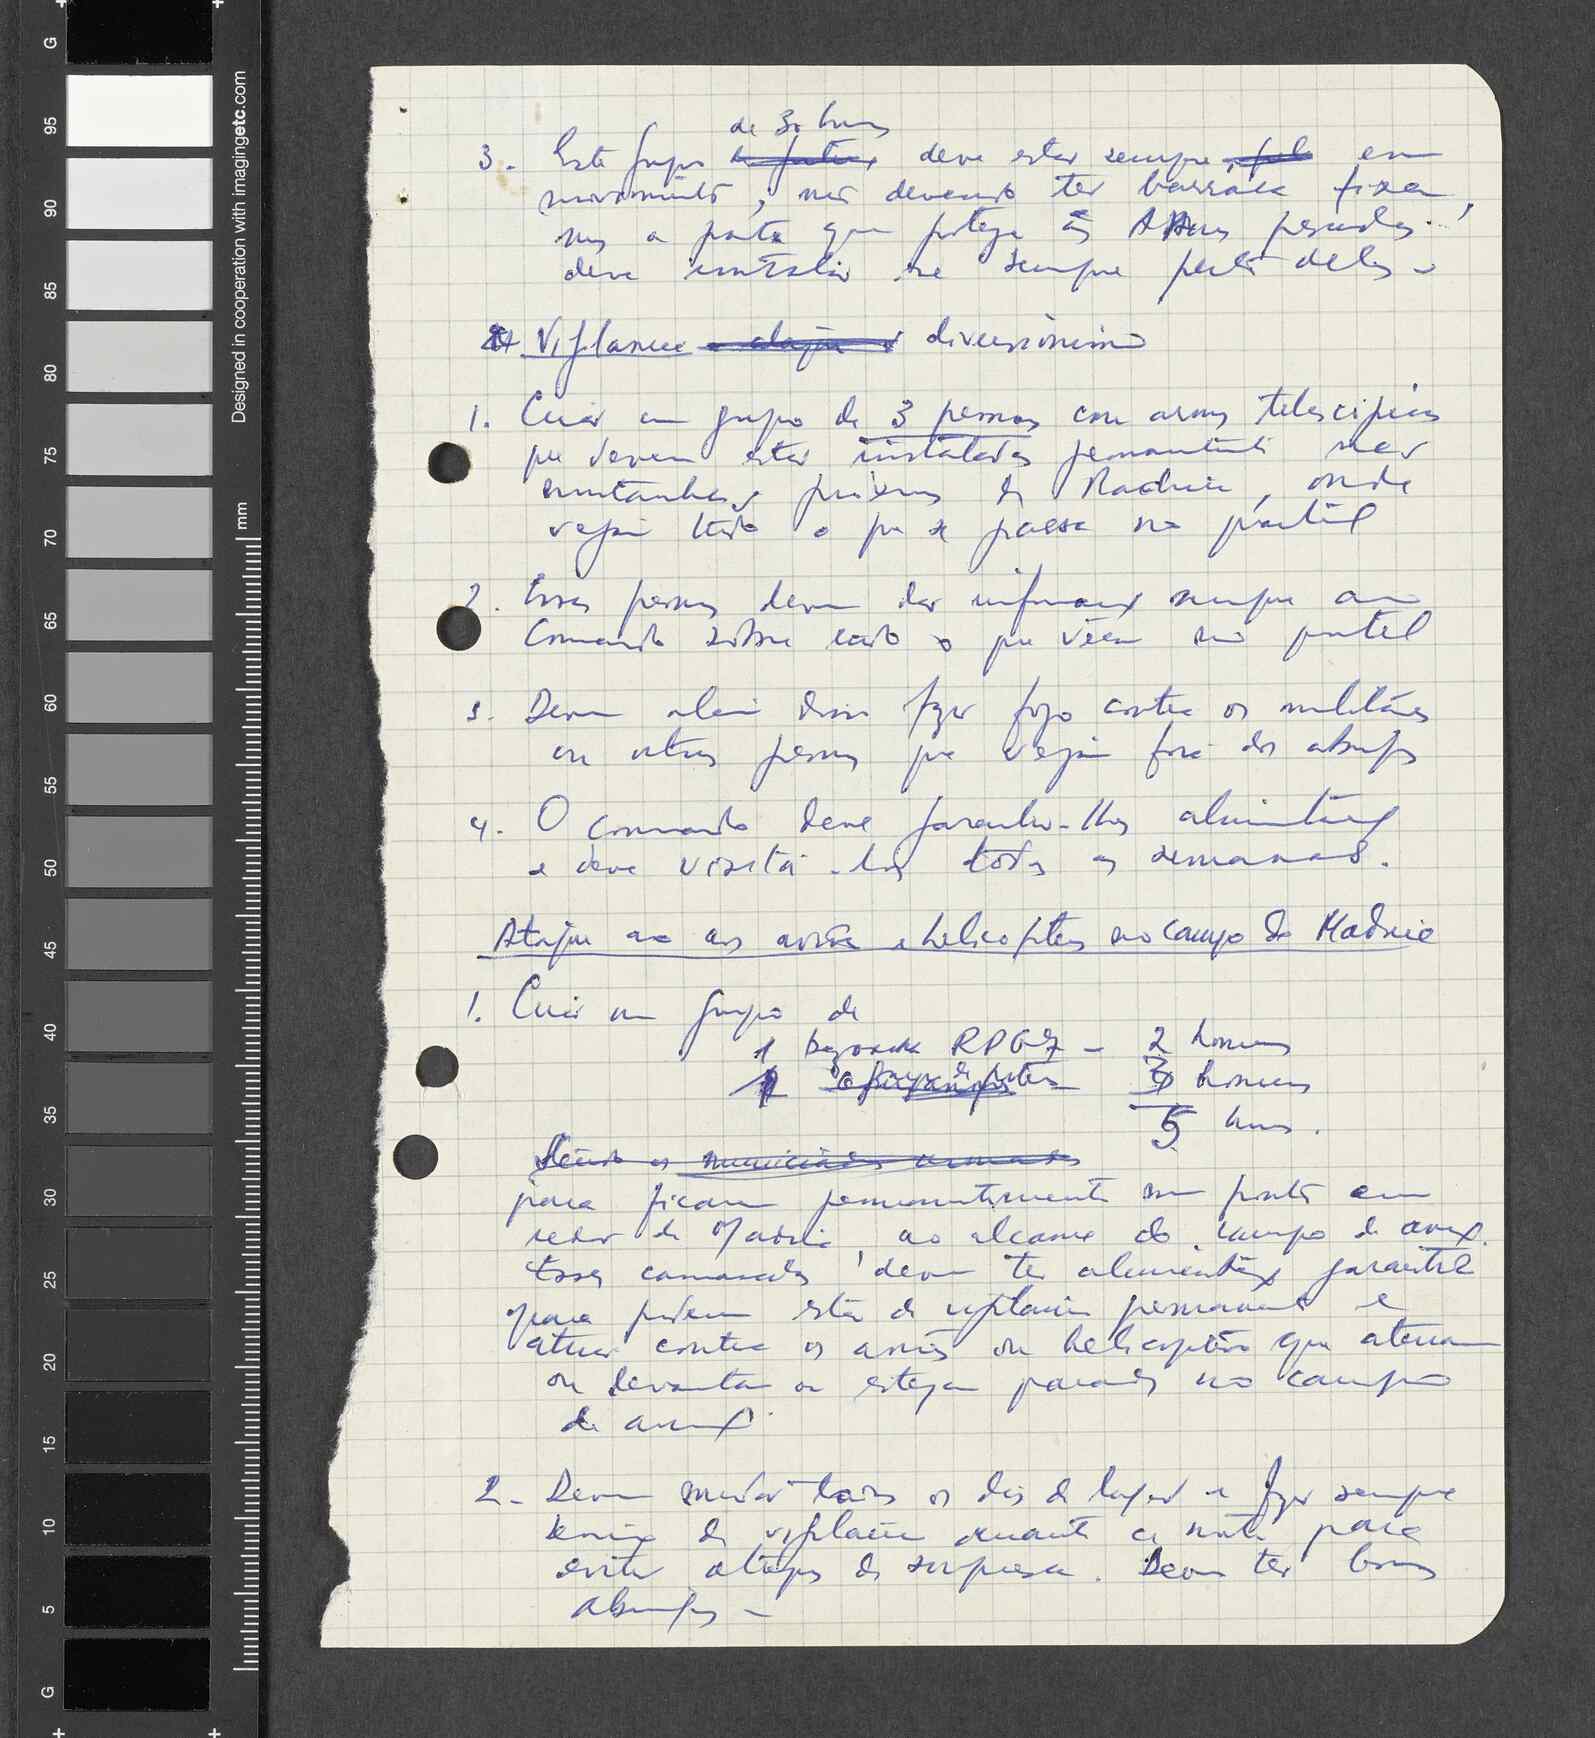 de 30 homens
3. Este grupo de deve estar sempre em
movimento, não devendo ter barraca fixa,
mas a parte que protege as Armas pesadas
deve instalar-se sempre perto delas -
Vigilancia diversionismo
1. Criar um grupo de 3 pessoas com armas telescópicas
que devem estar instaladas permanente nas
montanhas próximas de Madina, onde
vejam tudo o que se passa no quartel
2. Essas pessoas devem dar informações sempre ao
Comando sobre tudo o que vêem no quartel
3. Devem alem disso fazer fogo contra os militares
ou outras pessoas que vejam fora dos abrigos
4. O comando deve garantir-lhes alimentação
e deve visitá-los todas as semanas.
Ataque ao aos aviões e helicopteros no campo de Madina
1. Criar um grupo de
1 bazooka RPG7 - 2 homens
1 3 homens
5 homens.
para ficarem permanentemente num ponto em
redor de Madina, ao alcance do campo de aviação.
Esses camaradas devem ter alimentação garantida
para poderem estar de vigilancia permanente e
atuar contra os aviões ou helicopteros que aterram
ou levantam ou estejam parados no campo
de aviação.
2. Devem mudar todos os dias de lugar e fazer sempre
serviço de vigilancia durante a noite para
evitar ataques de surpresa. Devem ter bons
abrigos -
G
95
90
85
80
75
70
65
60
55
50
45
40
35
30
25
20
15
10
5
G
mm
Designed in cooperation with imagingetc.com